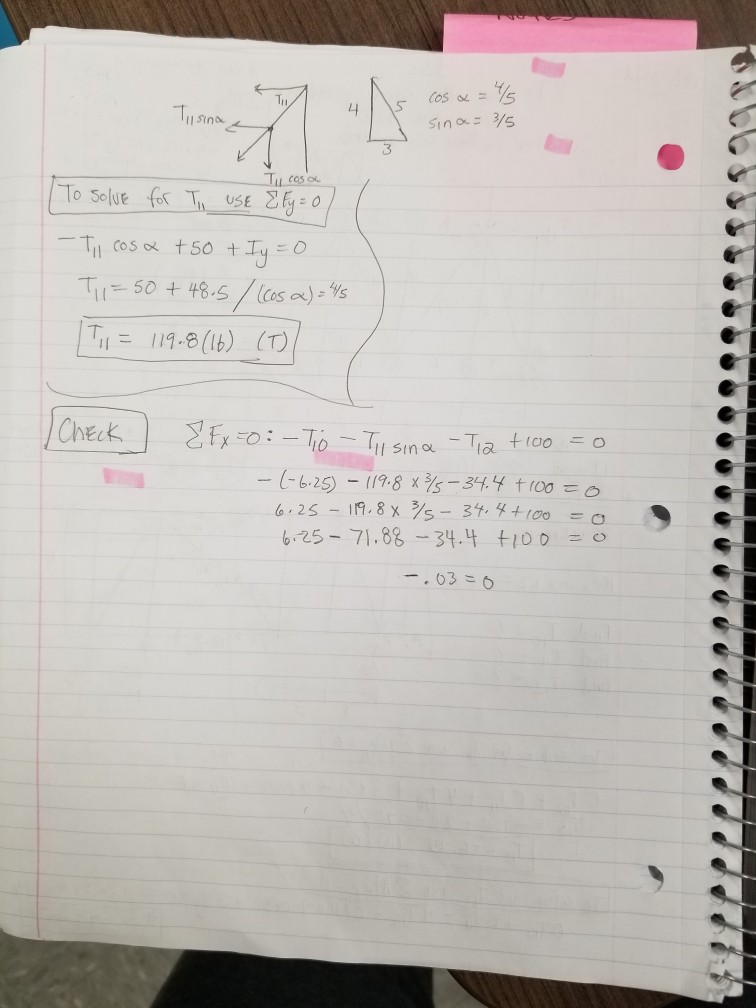 NOTES
T₁₁
T₁₁ sinα
T₁₁ cosα
4 5
3
cos α = 4/5
sinα = 3/5
To solve for T₁₁ USE ΣFy = 0
-T₁₁ cos α + 50 + Iy = 0
T₁₁ = 50 + 48.5 / (cos α) = 4/5
T₁₁ = 119.8 (lb) (T)
Check
ΣFx = 0: - T₁₀ - T₁₁ sinα - T₁₂ + 100 = 0
- (-6.25) - 119.8 x 3/5 - 34.4 + 100 = 0
6.25 - 119.8 x 3/5 - 34.4 + 100 = 0
6.25 - 71.88 - 34.4 + 100 = 0
-.03 = 0